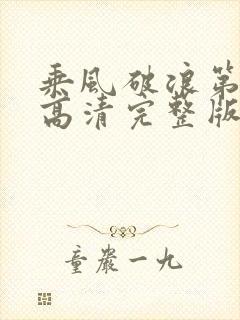 乘风破浪第
高清完整版
童严一九